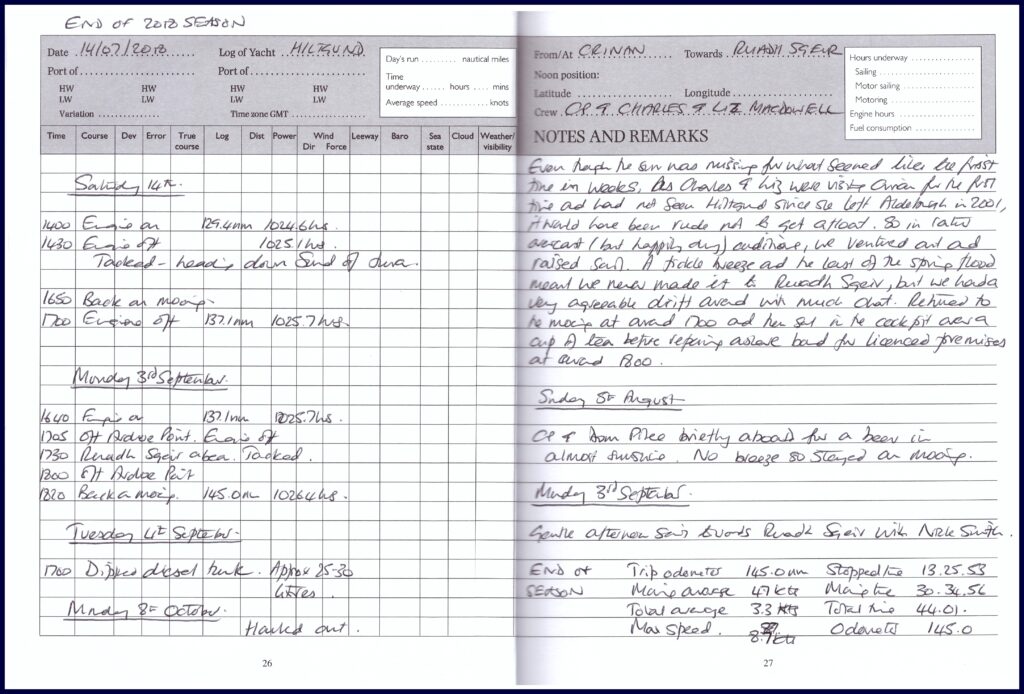 END OF 2018 SEASON
Date 14/07/2018 Log of Yacht HILTGUND
Day's run nautical miles
Port of Port of
Time
underway hours mins
HW HW
LW LW
Average speed knots
Variation Time zone GMT
Time Course Dev Error True course Log Dist Power Wind Dir Force Leeway Baro Sea state Cloud Weather/visibility
Saturday 14th.
1400 Engine on 129.4nm 1024.6hrs
1430 Engine off 1025.1hrs
Tacked - heading down Sound of Jura.
1650 Back on mooring
1700 Engine off 137.1nm 1025.7hrs.
Monday 3rd September.
1640 Engine on 137.1nm 1025.7hs
1705 Off Ardnoe Point. Engine off
1730 Ruadh Sgeir abeam. Tacked.
1800 Off Ardnoe Point
1820 Back on mooring. 145.0nm 1026.4hs.
Tuesday 4th September.
1700 Dipped diesel tank. Approx 25-30
litres
Monday 8th October.
Hauled out.
26
From/At CRINAN Towards RUADH SGEIR
Noon position:
Latitude Longitude
Crew OP & CHARLES & LIZ MACDOWELL
Hours underway
Sailing
Motor sailing
Motoring
Engine hours
Fuel consumption
NOTES AND REMARKS
Even though the sun was missing for what seemed like the first
time in weeks, as Charles & Liz were visiting Crinan for the first
time and had not seen Hiltgund since she left Aldeburgh in 2001,
it would have been rude not to get afloat. So in rather
overcast (but happily dry) conditions, we ventured out and
raised sail. A fickle breeze and the last of the spring flood
meant we never made it to Ruadh Sgeir, but we had a
very agreeable drift around with much chat. Returned to
the mooring at around 1700 and then sat in the cockpit over a
cup of tea before repairing ashore bound for licenced premises
at around 1800.
Sunday 5th August
OP & Dom briefly aboard for a beer in
almost sunshine. No breeze so stayed on mooring.
Monday 3rd September.
Gentle afternoon sail towards Ruadh Sgeir with Nick Smith.
END OF Trip odometer 145.0nm Stopped time 13.25.53
SEASON Moving average 4.7 kts Moving time 30.34.56
Total average 3.3 kts Total time 44.01.
Max Speed. 8.9kts Odometer 145.0
27